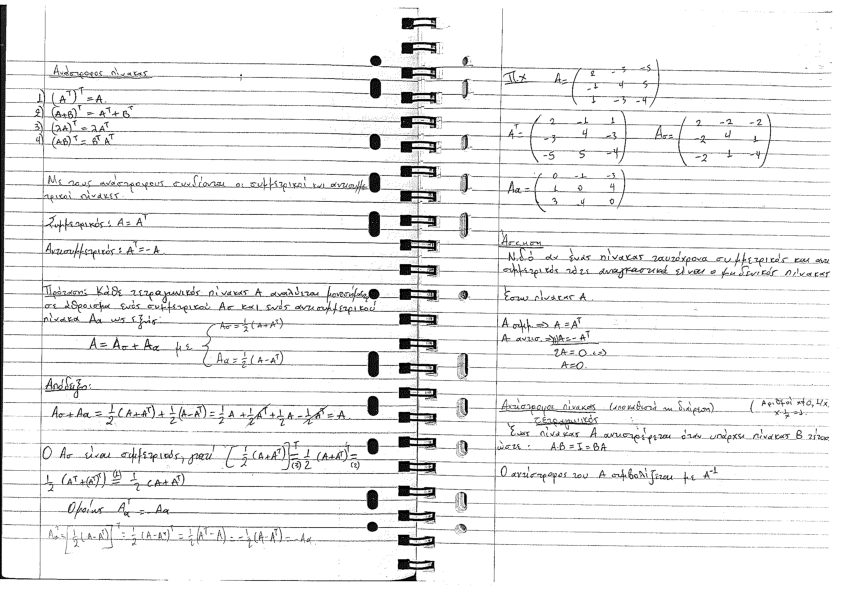 Ανάστροφος πίνακας
1) (Aᵀ)ᵀ = A
2) (A+B)ᵀ = Aᵀ + Bᵀ
3) (λA)ᵀ = λAᵀ
4) (AB)ᵀ = BᵀAᵀ
Με τους ανάστροφους συνδέονται οι συμμετρικοί και αντισυμμε
τρικοί πίνακες.
Συμμετρικός: A = Aᵀ
Αντισυμμετρικός: Aᵀ = -A
Πρόταση: Κάθε τετραγωνικός πίνακας A αναλύεται μονοσήμαντα
σε άθροισμα ενός συμμετρικού Aσ και ενός αντισυμμετρικού
πίνακα Aα ως εξής:
A = Aσ + Aα με { Aσ = 1/2 (A+Aᵀ)
Aα = 1/2 (A-Aᵀ)
Απόδειξη:
Aσ + Aα = 1/2 (A+Aᵀ) + 1/2 (A-Aᵀ) = 1/2 A + 1/2 Aᵀ + 1/2 A - 1/2 Aᵀ = A.
Ο Aσ είναι συμμετρικός, γιατί [1/2 (A+Aᵀ)]ᵀ =(3) 1/2 (A+Aᵀ)ᵀ =(2)
1/2 (Aᵀ+(Aᵀ)ᵀ) =(1) 1/2 (A+Aᵀ)
Ομοίως Aαᵀ = -Aα
Aαᵀ = [1/2 (A-Aᵀ)]ᵀ = 1/2 (A-Aᵀ)ᵀ = 1/2 (Aᵀ-A) = -1/2 (A-Aᵀ) = -Aα
Π.χ A = ( 2 -3 -5
-1 4 5
1 -3 -4 )
Aᵀ = ( 2 -1 1
-3 4 -3
-5 5 -4 )
Aσ = ( 2 -2 -2
-2 4 1
-2 1 -4 )
Aα = ( 0 -1 -3
1 0 4
3 -4 0 )
Άσκηση
Ν.δ.ό αν ένας πίνακας ταυτόχρονα συμμετρικός και αντι
συμμετρικός τότε αναγκαστικά είναι ο μηδενικός πίνακας
Έστω πίνακας A.
A συμμ ⇒ A = Aᵀ
A αντισ. ⇒ A = -Aᵀ
2A = 0 ⇔
A = 0.
Αντίστροφος πίνακας (υποκαθιστά τη διαίρεση) (Αριθμοί x≠0, 1/x
x·1/x = 1.
τετραγωνικός
Ένας πίνακας A αντιστρέφεται όταν υπάρχει πίνακας B τέτοιος
ώστε: AB = I = BA
Ο αντίστροφος του A συμβολίζεται με A⁻¹